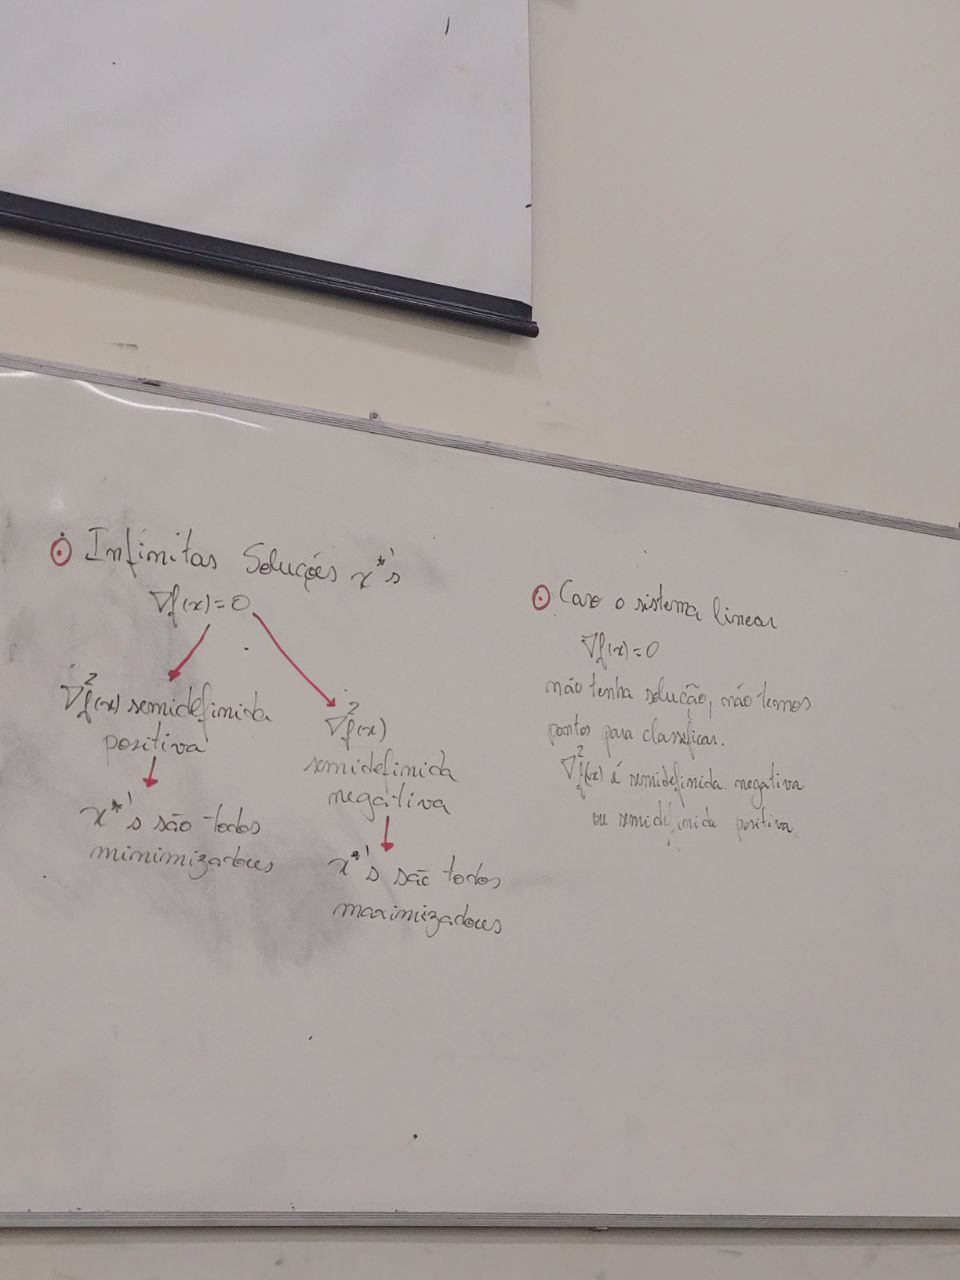 Infinitas Soluções x*'s
∇f(x)=0
∇²f(x) semidefinida
positiva
x*'s são todos
minimizadores
∇²f(x)
semidefinida
negativa
x*'s são todos
maximizadores
Caso o sistema linear
∇f(x)=0
não tenha solução, não temos
pontos para classificar.
∇²f(x) é semidefinida negativa
ou semidefinida positiva.